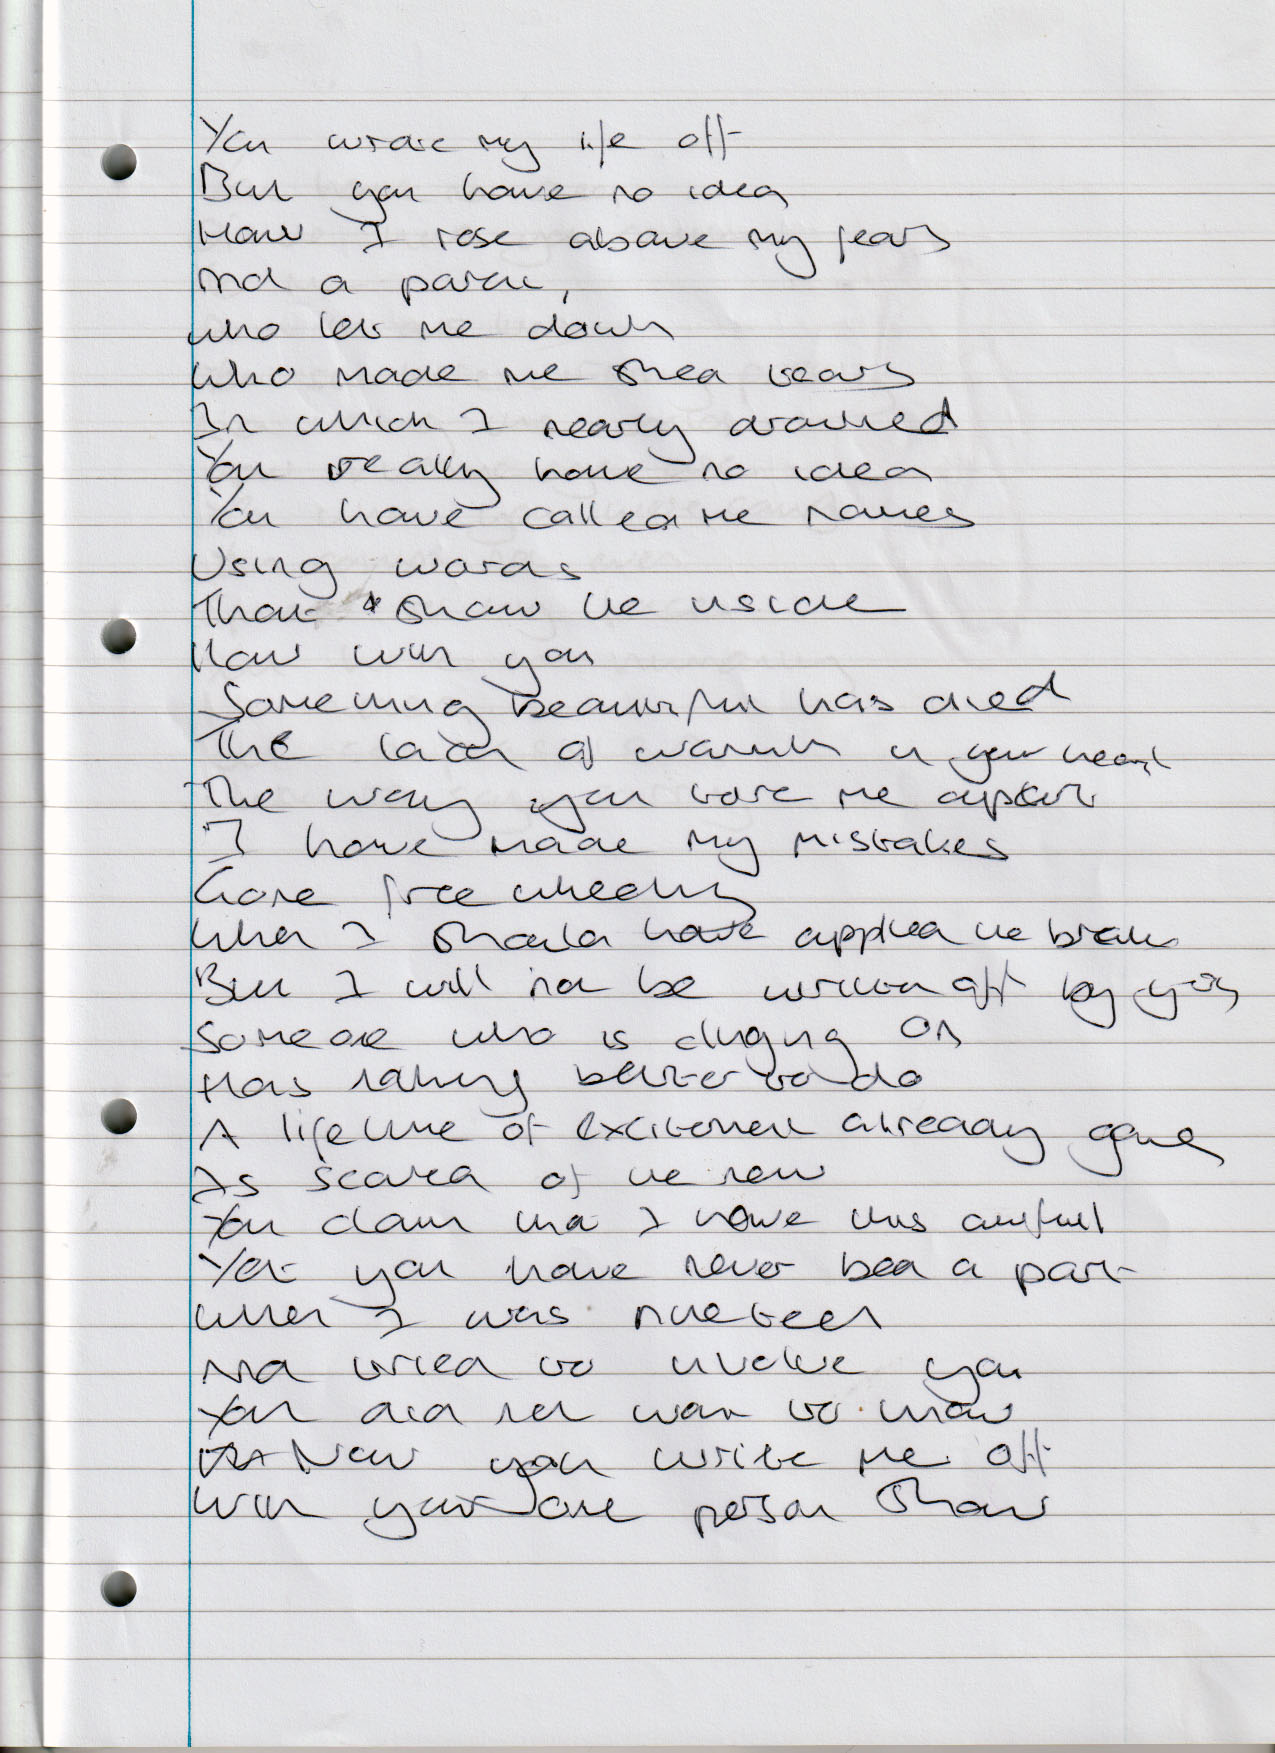 You wrote my life off
But you have no idea
How I rose above my fears
And a parent,
who let me down
Who made me shed tears
In which I nearly drowned
You really have no idea
You have called me names
Using words
That show the inside
How with you
Something beautiful has died
The lack of warmth in your heart
The way you tore me apart
I have made my mistakes
Gone free wheeling
When I should have applied the brake
But I will not be written off by you
Someone who is clinging on
Has nothing better to do
A lifetime of excitement already gone
Is scared of the new
You claim that I have this awful
Yet you have never been a part
When I was nineteen
And tried to involve you
You did not want to know
Now you write me off
With your one person show